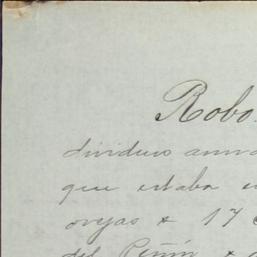 Robo.
dividuo
que estaba
ovejas & 17
del Peñín &